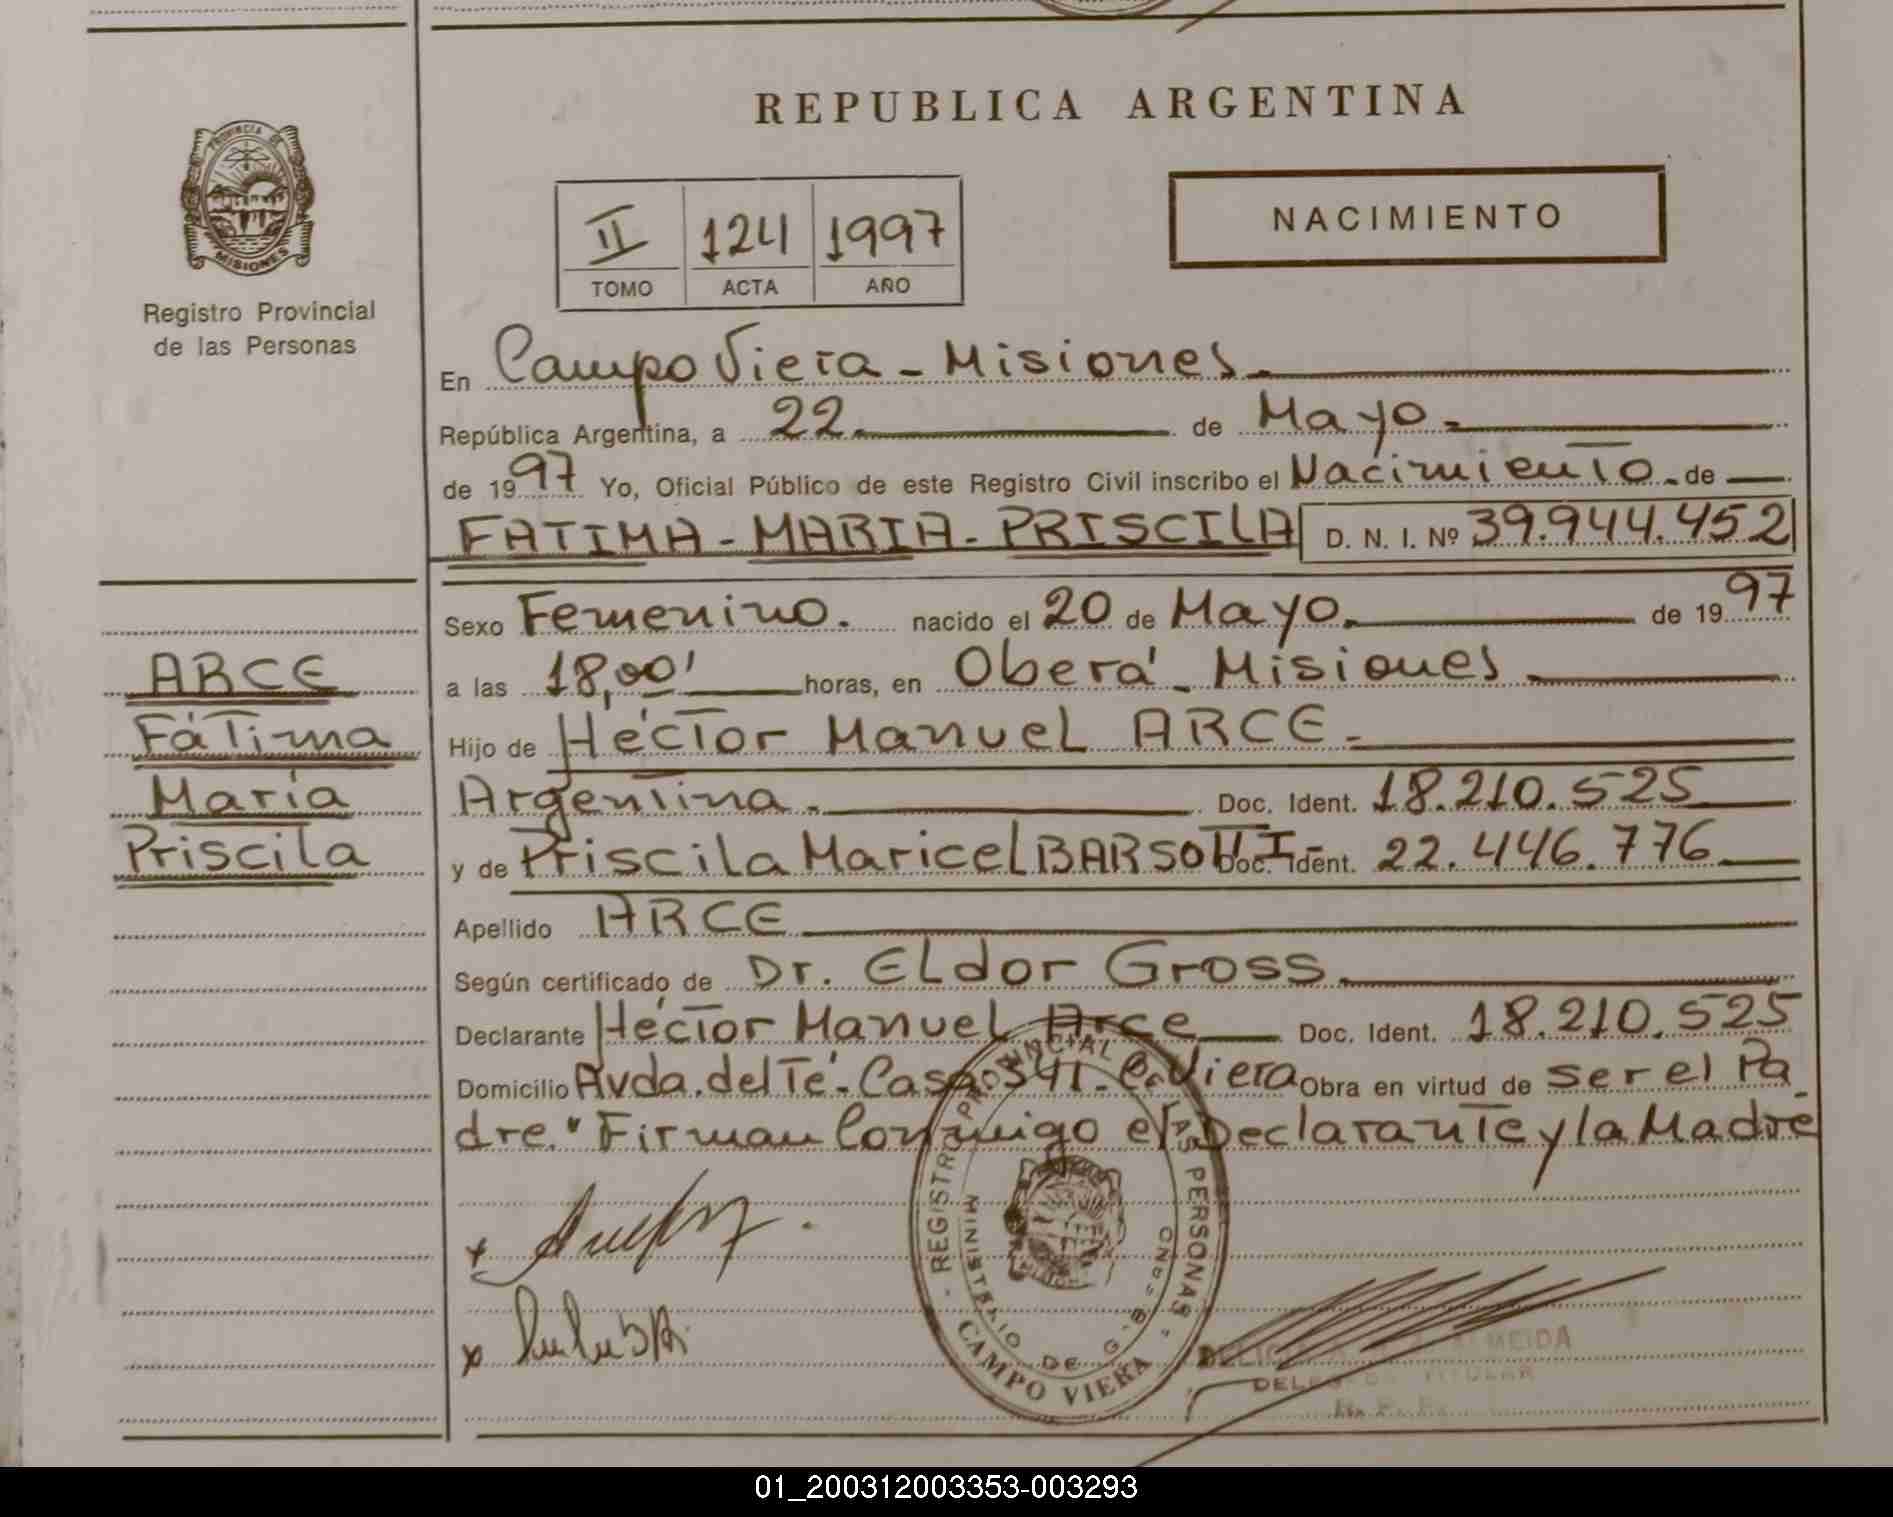 REPUBLICA ARGENTINA
PROVINCIA DE
MISIONES
Registro Provincial
de las Personas
II 124 1997
TOMO ACTA AÑO
NACIMIENTO
En Campo Viera - Misiones
República Argentina, a 22 de Mayo
de 1997 Yo, Oficial Público de este Registro Civil inscribo el Nacimiento de
FATIMA - MARIA - PRISCILA D. N. I. Nº 39.944.452
Sexo Femenino. nacido el 20 de Mayo. de 1997
a las 18,00' horas, en Oberá - Misiones
Hijo de Héctor Manuel ARCE -
Argentina. Doc. Ident. 18.210.525
y de Priscila Maricel BARSOTTI- Doc. Ident. 22.446.776
Apellido ARCE
Según certificado de Dr. Eldor Gross.
Declarante Héctor Manuel Arce Doc. Ident. 18.210.525
Domicilio Avda. del Té - Casa 341 - C. Viera Obra en virtud de ser el Pa
dre." Firman Conmigo el Declarante y la Madre
ARCE
Fátima
María
Priscila
REGISTRO PROVINCIAL DE LAS PERSONAS
MINISTERIO DE G.
CAMPO VIERA
ALMEIDA
TITULAR
01_200312003353-003293